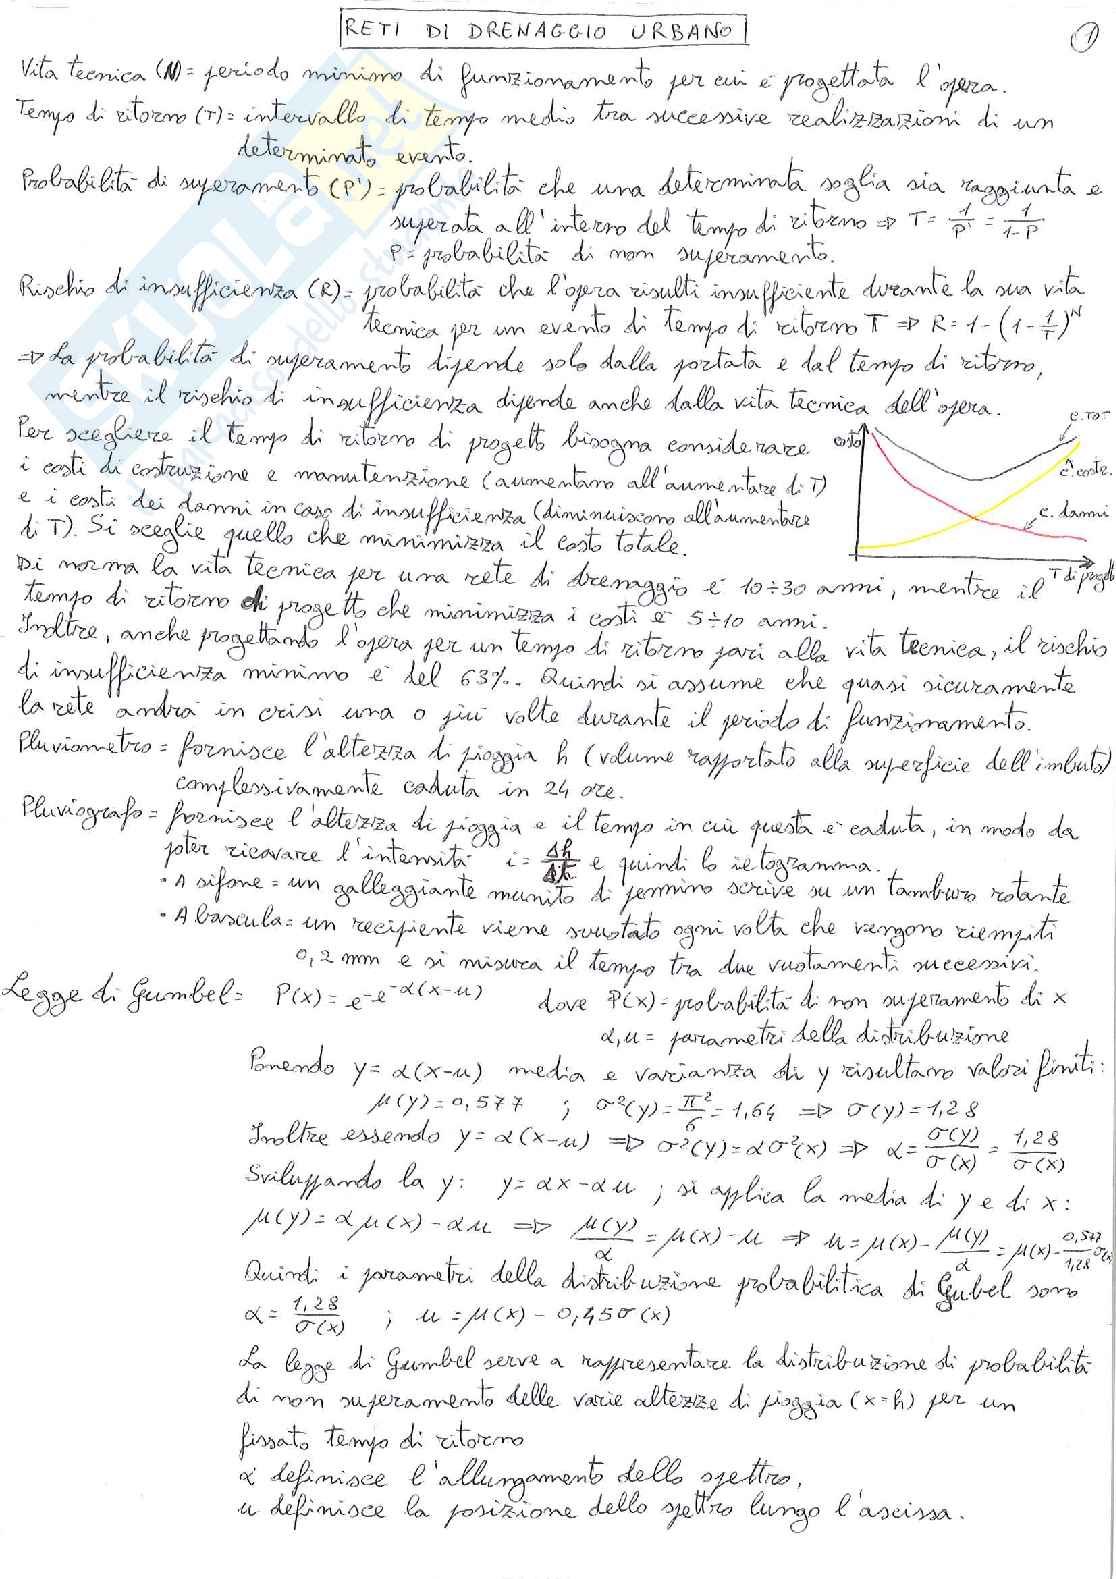 RETI DI DRENAGGIO URBANO
1
Vita tecnica (N) = periodo minimo di funzionamento per cui è progettata l'opera.
Tempo di ritorno (T) = intervallo di tempo medio tra successive realizzazioni di un
determinato evento.
Probabilità di superamento (P') = probabilità che una determinata soglia sia raggiunta e
superata all'interno del tempo di ritorno ⇒ T = 1/P' = 1/1-P
P = probabilità di non superamento.
Rischio di insufficienza (R) = probabilità che l'opera risulti insufficiente durante la sua vita
tecnica per un evento di tempo di ritorno T ⇒ R = 1 - (1 - 1/T)^N
⇒ La probabilità di superamento dipende solo dalla portata e dal tempo di ritorno,
mentre il rischio di insufficienza dipende anche dalla vita tecnica dell'opera.
Per scegliere il tempo di ritorno di progetto bisogna considerare
i costi di costruzione e manutenzione (aumentano all'aumentare di T)
e i costi dei danni in caso di insufficienza (diminuiscono all'aumentare
di T). Si sceglie quello che minimizza il costo totale.
costo
c. TOT
c. costr.
c. danni
T di progetto
Di norma la vita tecnica per una rete di drenaggio è 10÷30 anni, mentre il
tempo di ritorno di progetto che minimizza i costi è 5÷10 anni.
Inoltre, anche progettando l'opera per un tempo di ritorno pari alla vita tecnica, il rischio
di insufficienza minimo è del 63%. Quindi si assume che quasi sicuramente
la rete andrà in crisi una o più volte durante il periodo di funzinamento.
Pluviometro = fornisce l'altezza di pioggia h (volume rapportato alla superficie dell'imbuto)
complessivamente caduta in 24 ore.
Pluviografo = fornisce l'altezza di pioggia e il tempo in cui questa è caduta, in modo da
poter ricavare l'intensità i = Δh/Δt e quindi lo ietogramma.
• A sifone = un galleggiante munito di pennino scrive su un tamburo rotante
• A bascula = un recipiente viene svuotato ogni volta che vengono riempiti
0,2 mm e si misura il tempo tra due vuotamenti successivi.
Legge di Gumbel = P(x) = e^-e^-α(x-u) dove P(x) = probabilità di non superamento di x
α, u = parametri della distribuzione
Ponendo y = α(x-u) media e varianza di y risultano valori finiti:
μ(y) = 0,577 ; σ²(y) = π²/6 = 1,64 ⇒ σ(y) = 1,28
Inoltre essendo y = α(x-u) ⇒ σ²(y) = ασ²(x) ⇒ α = σ(y)/σ(x) = 1,28/σ(x)
Sviluppando la y: y = αx - αu ; si applica la media di y e di x:
μ(y) = αμ(x) - αu ⇒ μ(y)/α = μ(x) - u ⇒ u = μ(x) - μ(y)/α = μ(x) - 0,577/1,28 σ(x)
Quindi i parametri della distribuzione probabilitica di Gubel sono
α = 1,28/σ(x) ; u = μ(x) - 0,45σ(x)
La legge di Gumbel serve a rappresentare la distribuzione di probabilità
di non superamento delle varie altezze di pioggia (x=h) per un
fissato tempo di ritorno
α definisce l'allungamento dello spettro,
u definisce la posizione dello spettro lungo l'ascissa.